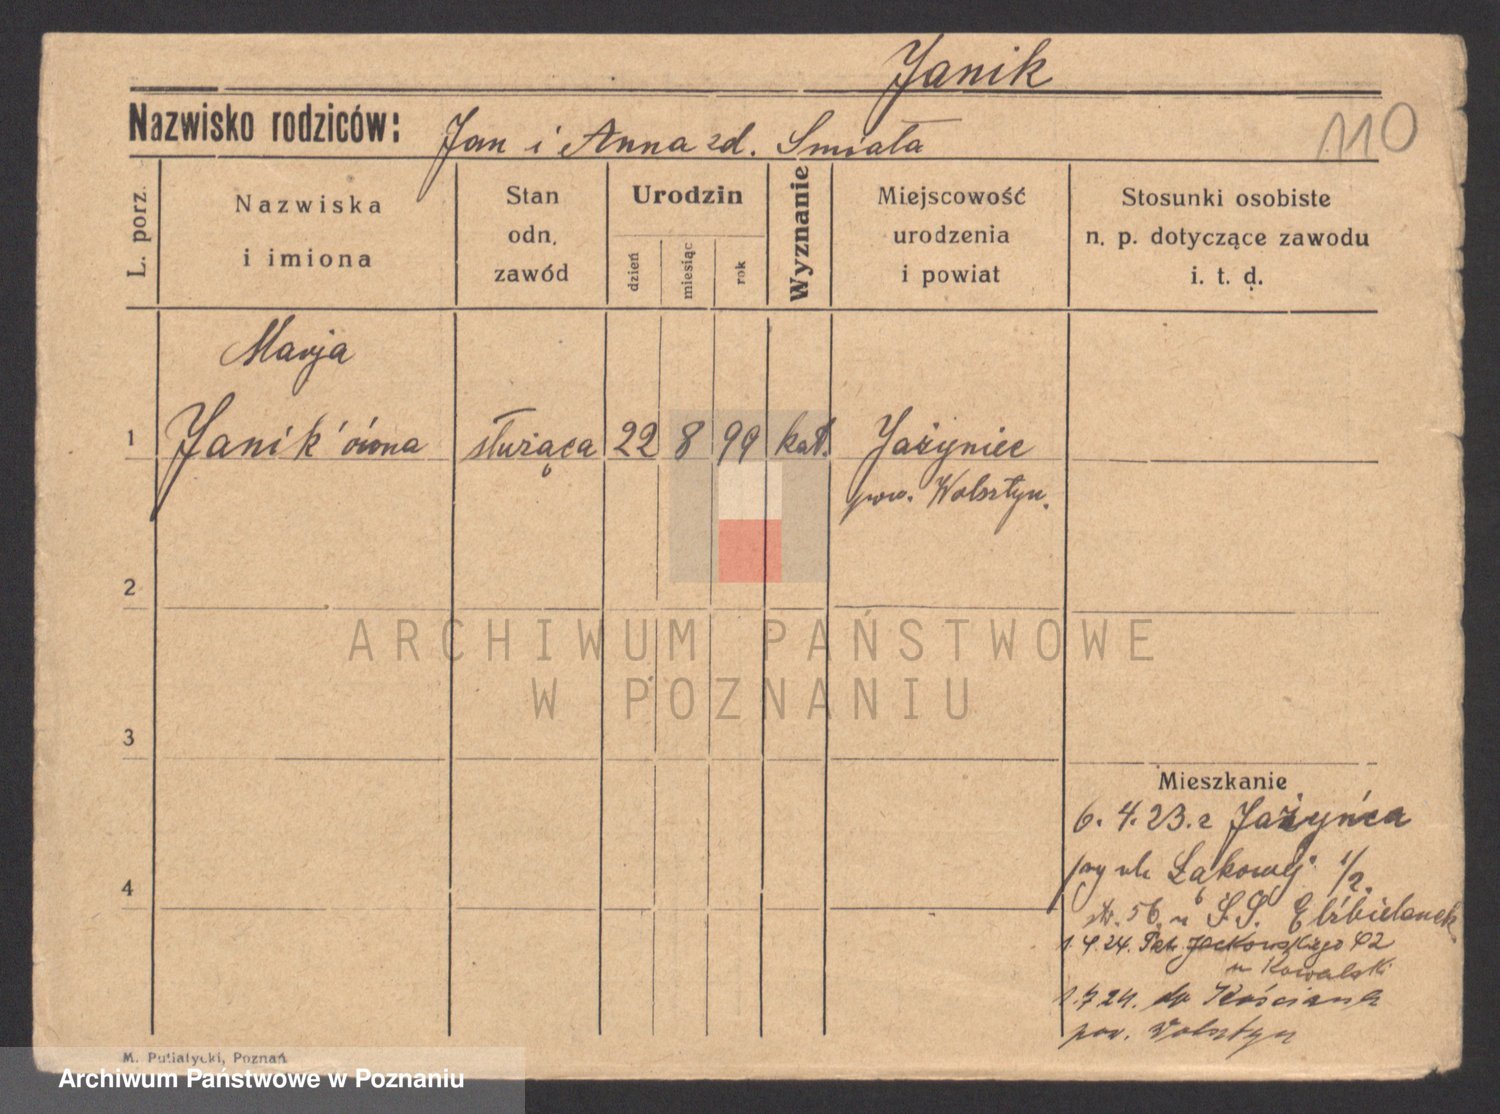 Janik
Nazwisko rodziców: Jan i Anna zd. Smiała
110
L. porz.
Nazwiska
i imiona
Stan
odn.
zawód
Urodzin
dzień
miesiąc
rok
Wyznanie
Miejscowość
urodzenia
i powiat
Stosunki osobiste
n. p. dotyczące zawodu
i. t. d.
Marja
1 Janik'ówna służąca 22 8 99 kat. Jażyniec
pow. Wolsztyn.
2
ARCHIWUM PAŃSTWOWE
W POZNANIU
3
Mieszkanie
6. 4. 23. z Jażyńca
przy ul. Łąkowej 1/2.
4
str. 56. u S.S. Elżbietanek
1.4.24. Jackowskiego 42
u Kowalski
1.7.24. do Kościana
pow. Wolsztyn
M. Putiatycki, Poznań
Archiwum Państwowe w Poznaniu